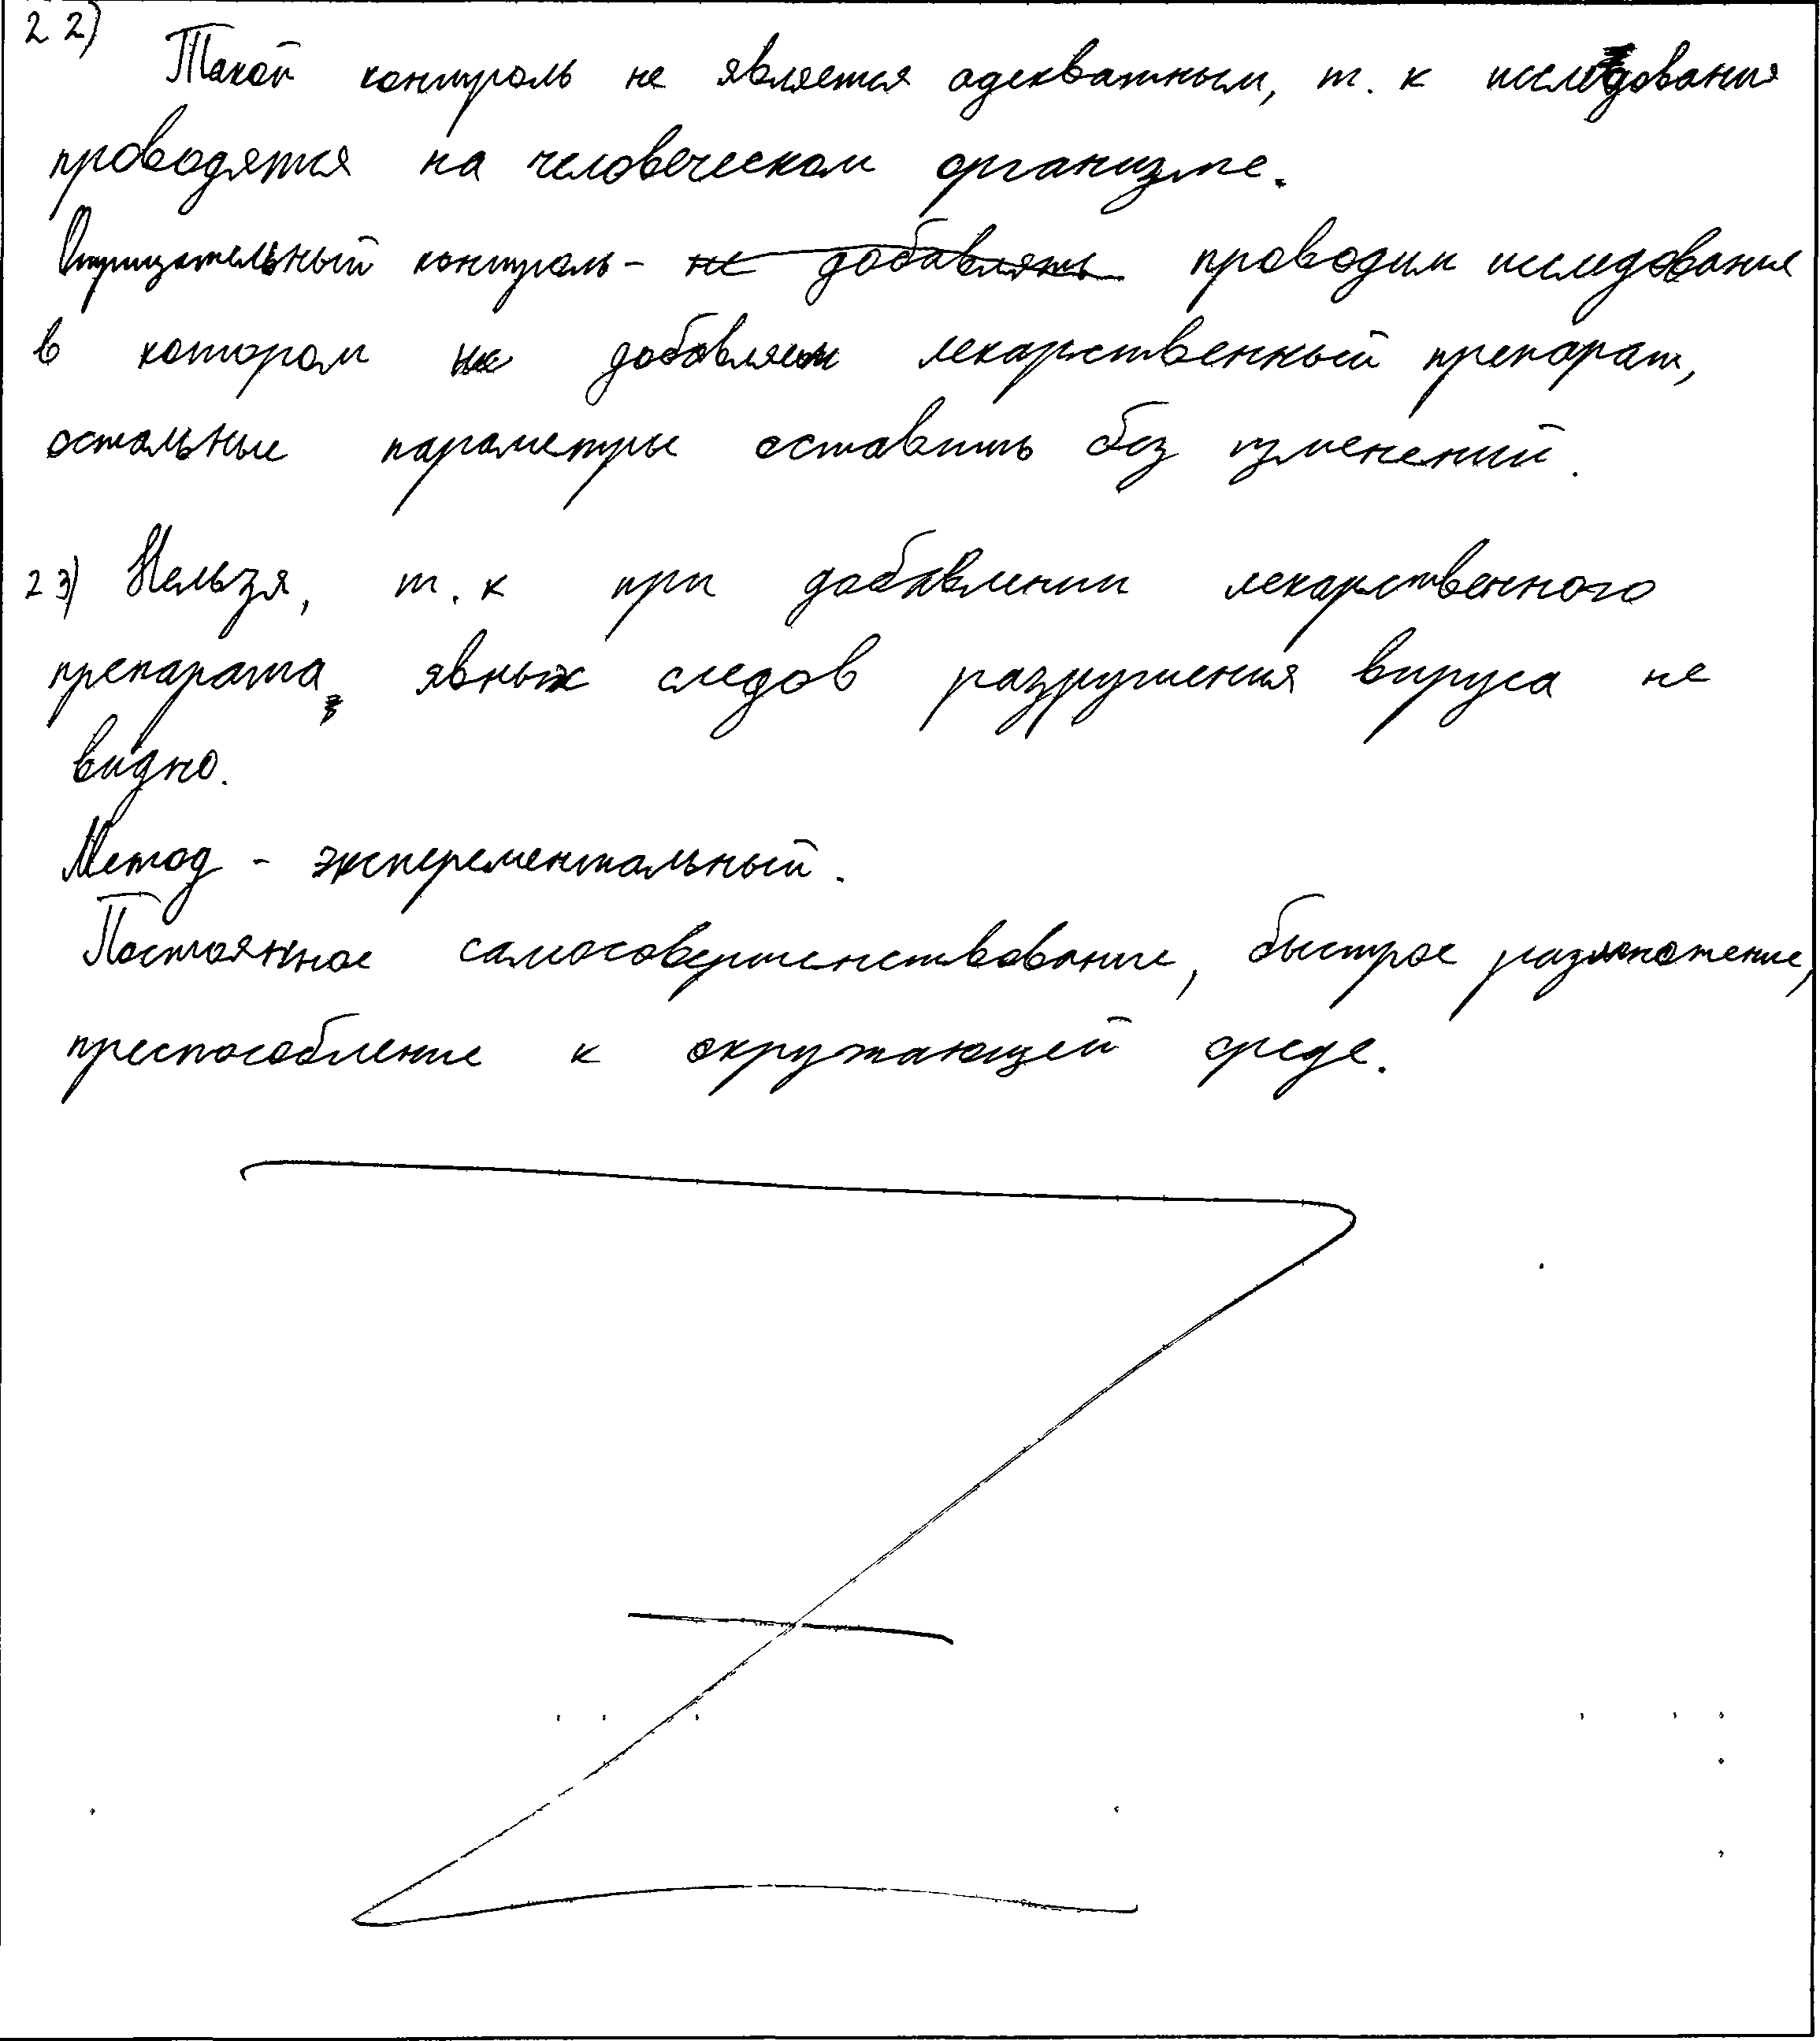 22)
Такой контроль не является адекватным, т. к исследования
проводятся на человеческом организме.
Отрицательный контроль - не добавлять проводим исследования
в котором не добавляем лекарственный препарат,
остальные параметры оставить без изменений.
23) Нельзя, т. к при добавлении лекарственного
препарата явных следов разрушения вируса не
видно.
Метод - эксперементальный.
Постоянное самосовершенствование, быстрое размножение,
преспособление к окружающей среде.